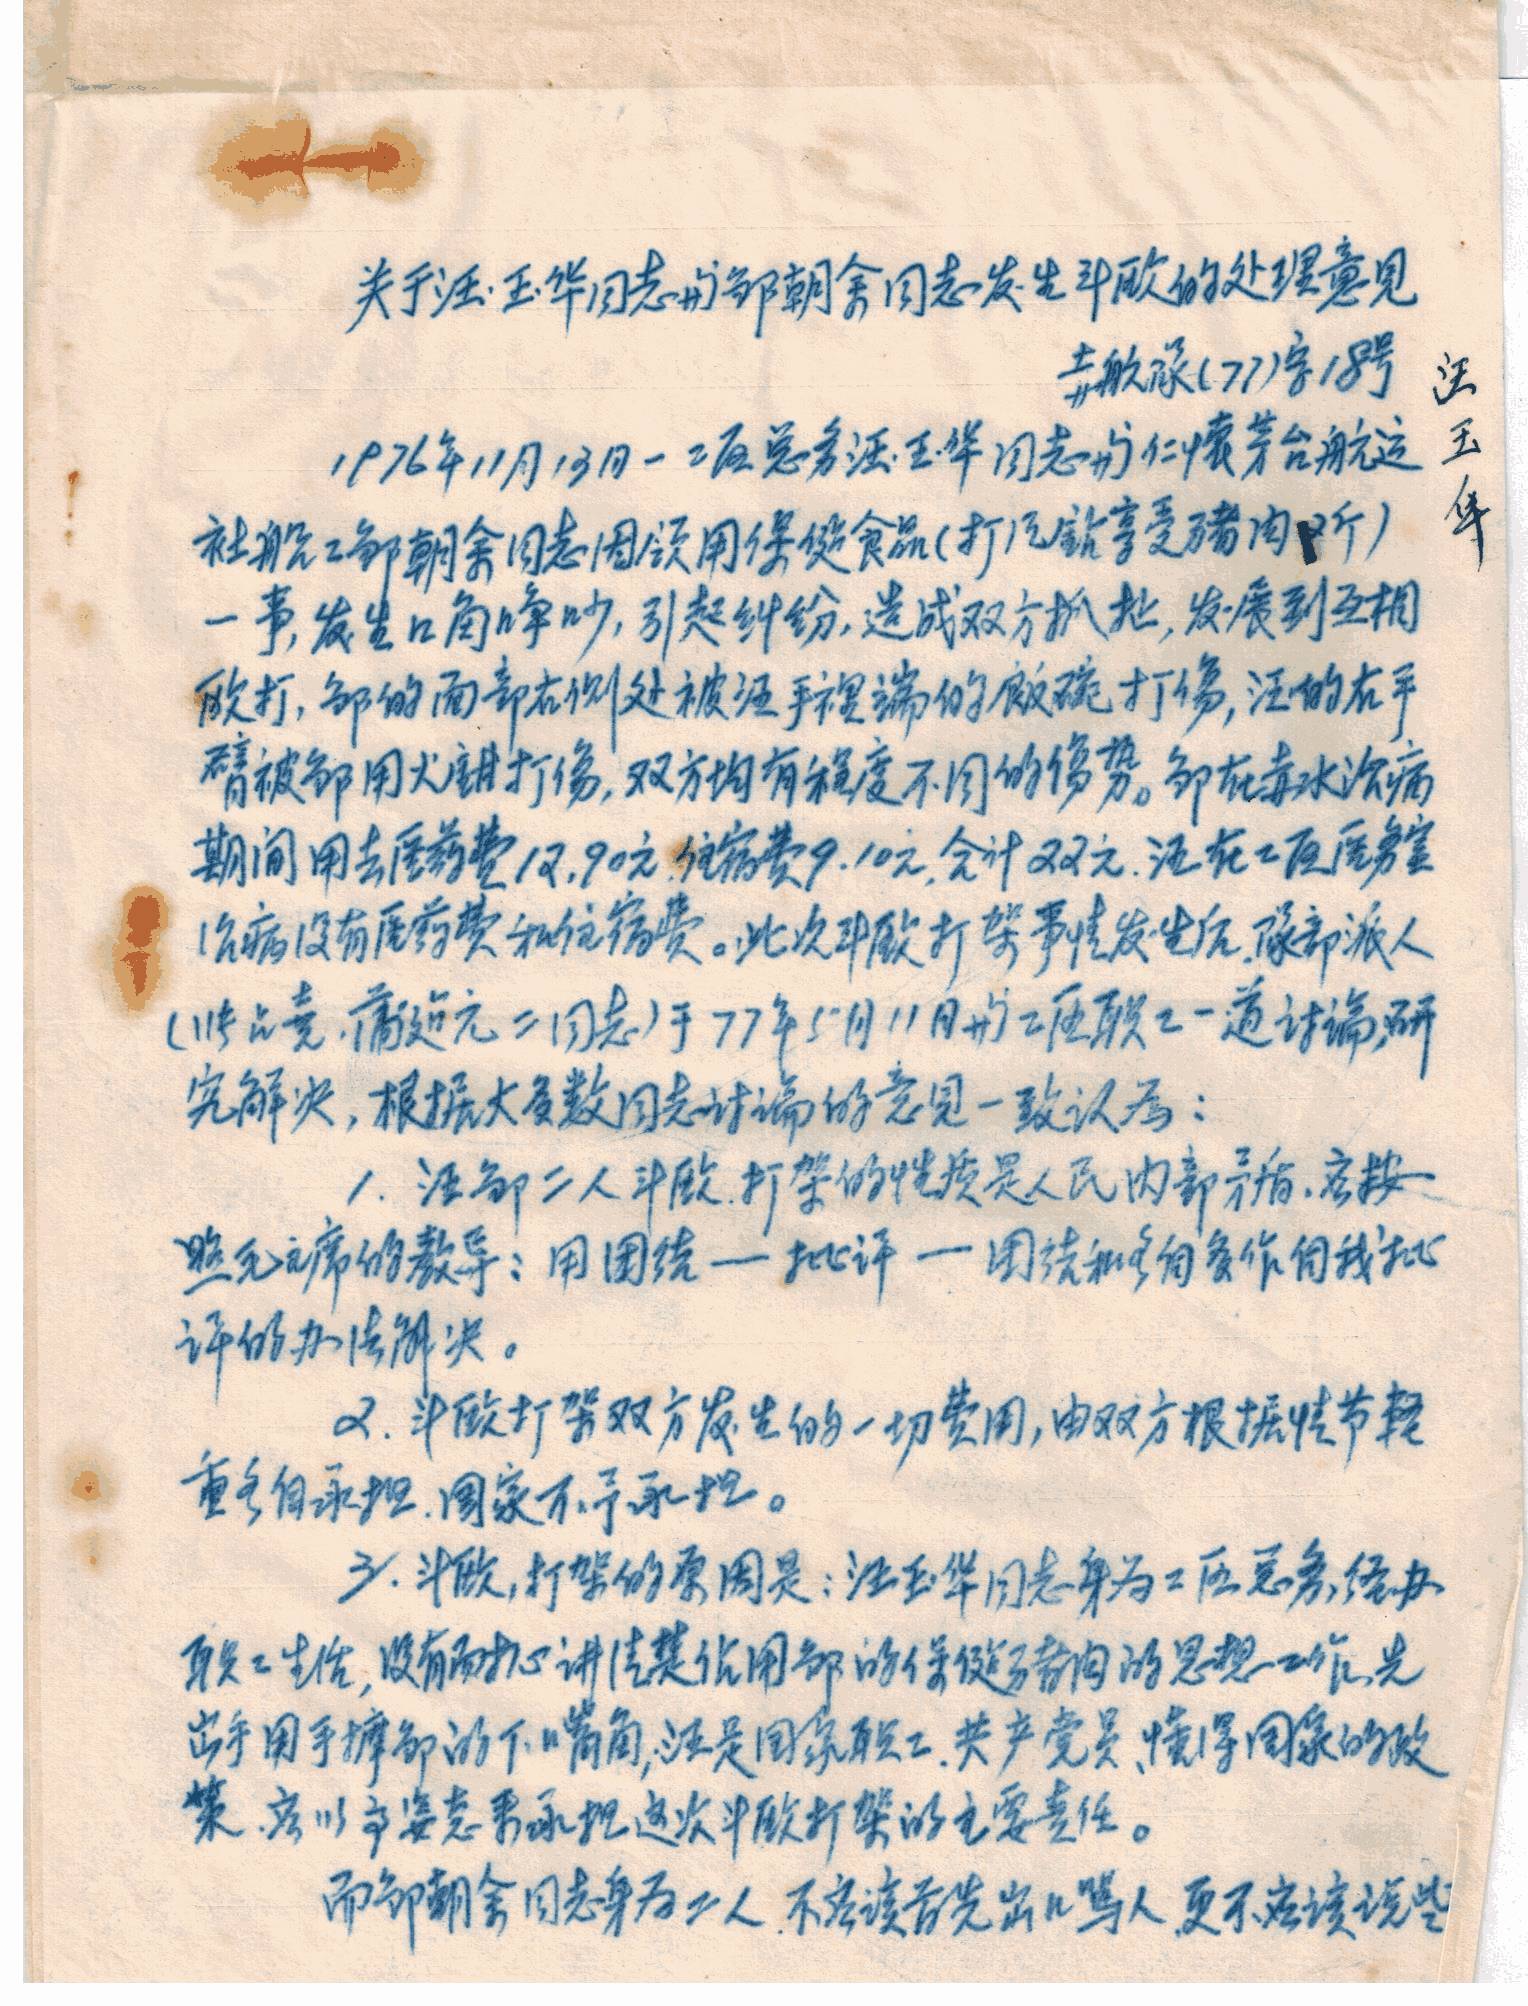 关于汪玉华同志与邹朝余同志发生斗欧的处理意见
赤航队(77)字18号
汪玉华
1976年11月13日一工区总务汪玉华同志与仁怀茅台航运
社船工邹朝余同志因领用保健食品(打风钻享受猪肉2斤)
一事,发生口角争吵,引起纠纷,造成双方抓扯,发展到互相
欧打,邹的面部右侧处被汪手裡端的飯碗打伤,汪的右手
臂被邹用火钳打伤,双方均有程度不同的伤势。邹在赤水治病
期间用去医药费12.90元.住宿费9.10元,合计22元.汪在工区医务室
治病没有医药费和住宿费。此次斗欧打架事情发生后.队部派人
(竞.蒲绍元二同志)于77年5月11日与工区职工一道讨论,研
究解决,根据大多数同志讨论的意见一致认为:
1. 汪邹二人斗欧.打架的性质是人民内部矛盾.应按
照毛主席的教导:用团结一批评一团结和各自多作自我批
评的办法解决。
2. 斗欧打架双方发生的一切费用,由双方根据情节轻
重各自承担.国家不予承担。
3. 斗欧,打架的原因是:汪玉华同志身为工区总务,经办
职工生活,没有耐心讲清楚领用邹的保健猪肉的思想工作,先
出手用手邹的下嘴角,汪是国家职工.共产党员、懂得国家的政
策.应以高姿态来承担这次斗欧打架的主要责任。
而邹朝余同志身为工人.不应该首先出口骂人.更不应该说些